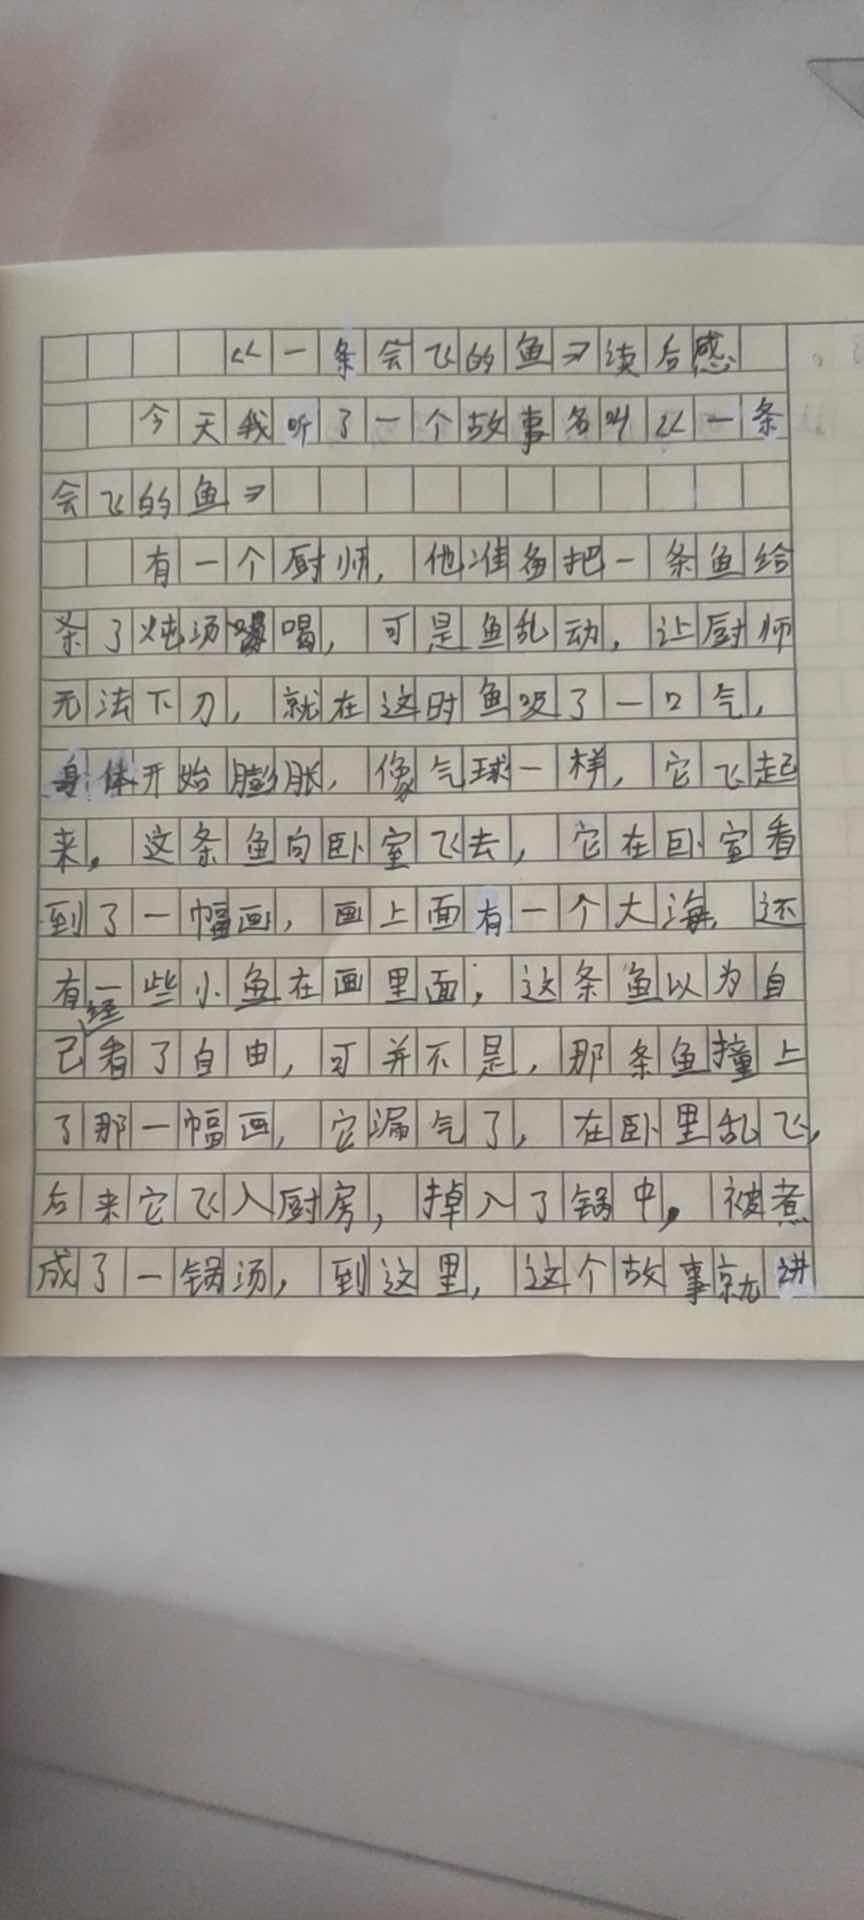 《一条会飞的鱼》读后感
今天我听了一个故事名叫《一条
会飞的鱼》
有一个厨师，他准备把一条鱼给
杀了炖汤喝，可是鱼乱动，让厨师
无法下刀，就在这时鱼吸了一口气，
身体开始膨胀，像气球一样，它飞起
来。这条鱼向卧室飞去，它在卧室看
到了一幅画，画上面有一个大海，还
有一些小鱼在画里面，这条鱼以为自
己经看了自由，可并不是，那条鱼撞上
了那一幅画，它漏气了，在卧里乱飞，
后来它飞入厨房，掉入了锅中，被煮
成了一锅汤，到这里，这个故事就讲